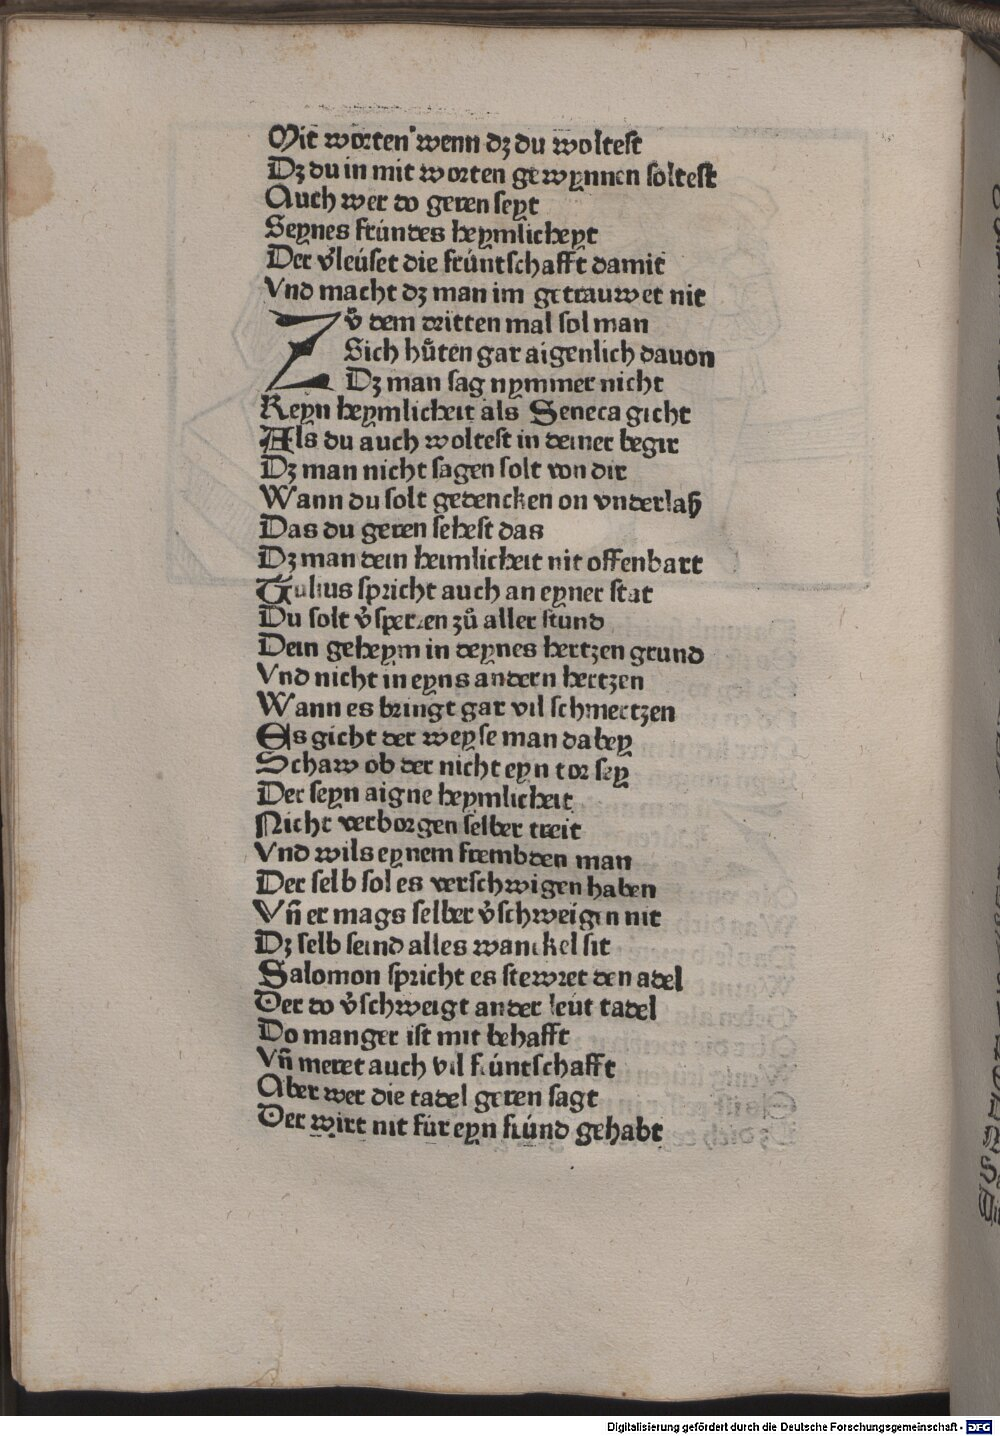 Mit worten wenn dz du woltest
Dz du in mit worten gewynnen soltest
Auch wer do geren seyt
Seynes fründes heymlicheyt
Der v̉leüset die früntschafft damit
Vnd macht dz man im getrauwet nit
Zů dem dritten mal sol man
Sich hůten gar aigenlich dauon
Dz man sag nymmer nicht
Keyn heymlicheit als Seneca gicht
Als du auch woltest in deiner begir
Dz man nicht sagen solt von dir
Wann du solt gedencken on vnderlaß
Das du geren sehest das
Dz man dein heimlicheit nit offenbart
Tulius spricht auch an eyner stat
Du solt v̉sperren zů aller stund
Dein geheym in deynes hertzen grund
Vnd nicht in eyns andern hertzen
Wann es bringt gar vil schmertzen
Es gicht der weyse man dabey
Schaw ob der nicht eyn tor sey
Der seyn aigne heymlicheit
Nicht verborgen selber treit
Vnd wils eynem frembden man
Der selb sol es verschwigen haben
Vn̄ er mags selber v̉schweigen nit
Dz selb seind alles wanckel sit
Salomon spricht es stewret den adel
Der do v̉schweigt ander leüt tadel
Do manger ist mit behafft
Vn̄ meret auch vil früntschafft
Aber wer die tadel geren sagt
Der wirt nit für eyn fründ gehabt
Digitalisierung gefördert durch die Deutsche Forschungsgemeinschaft - DFG